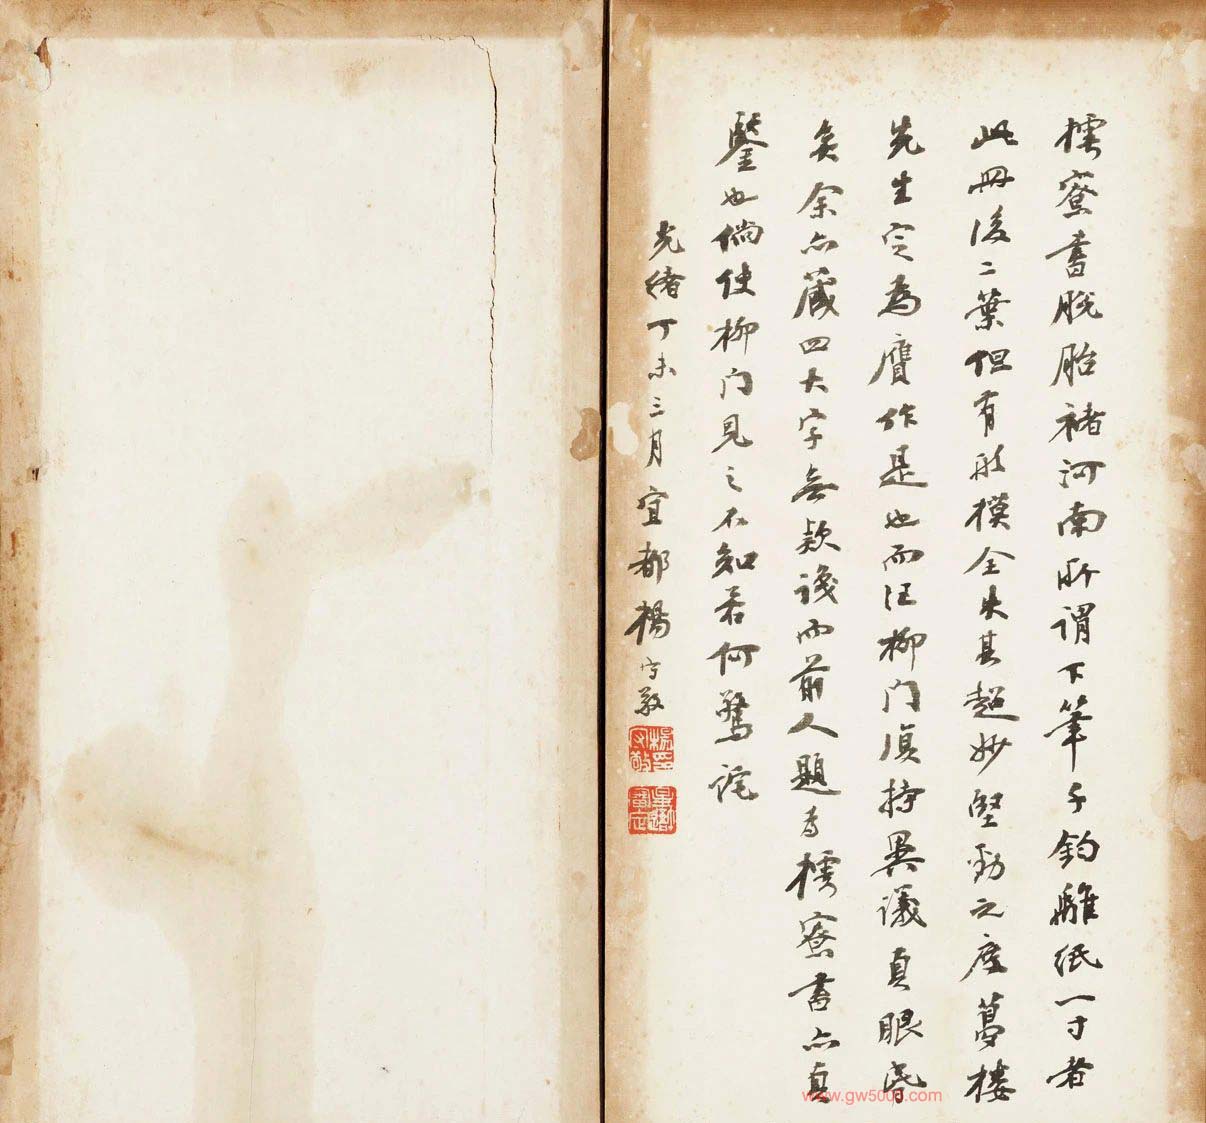 樗寮書脫胎褚河南所謂下筆千鈞離紙一寸者
此冊後二葉但有形模全失其超妙堅勁之度夢樓
先生定為贗作是也而汪柳門復持異議真眼昏
矣余亦藏四大字無款識而前人題為樗寮書亦真
鑒也倘使柳門見之不知若何驚詫
光緒丁未三月宜都楊守敬
www.gw500.com